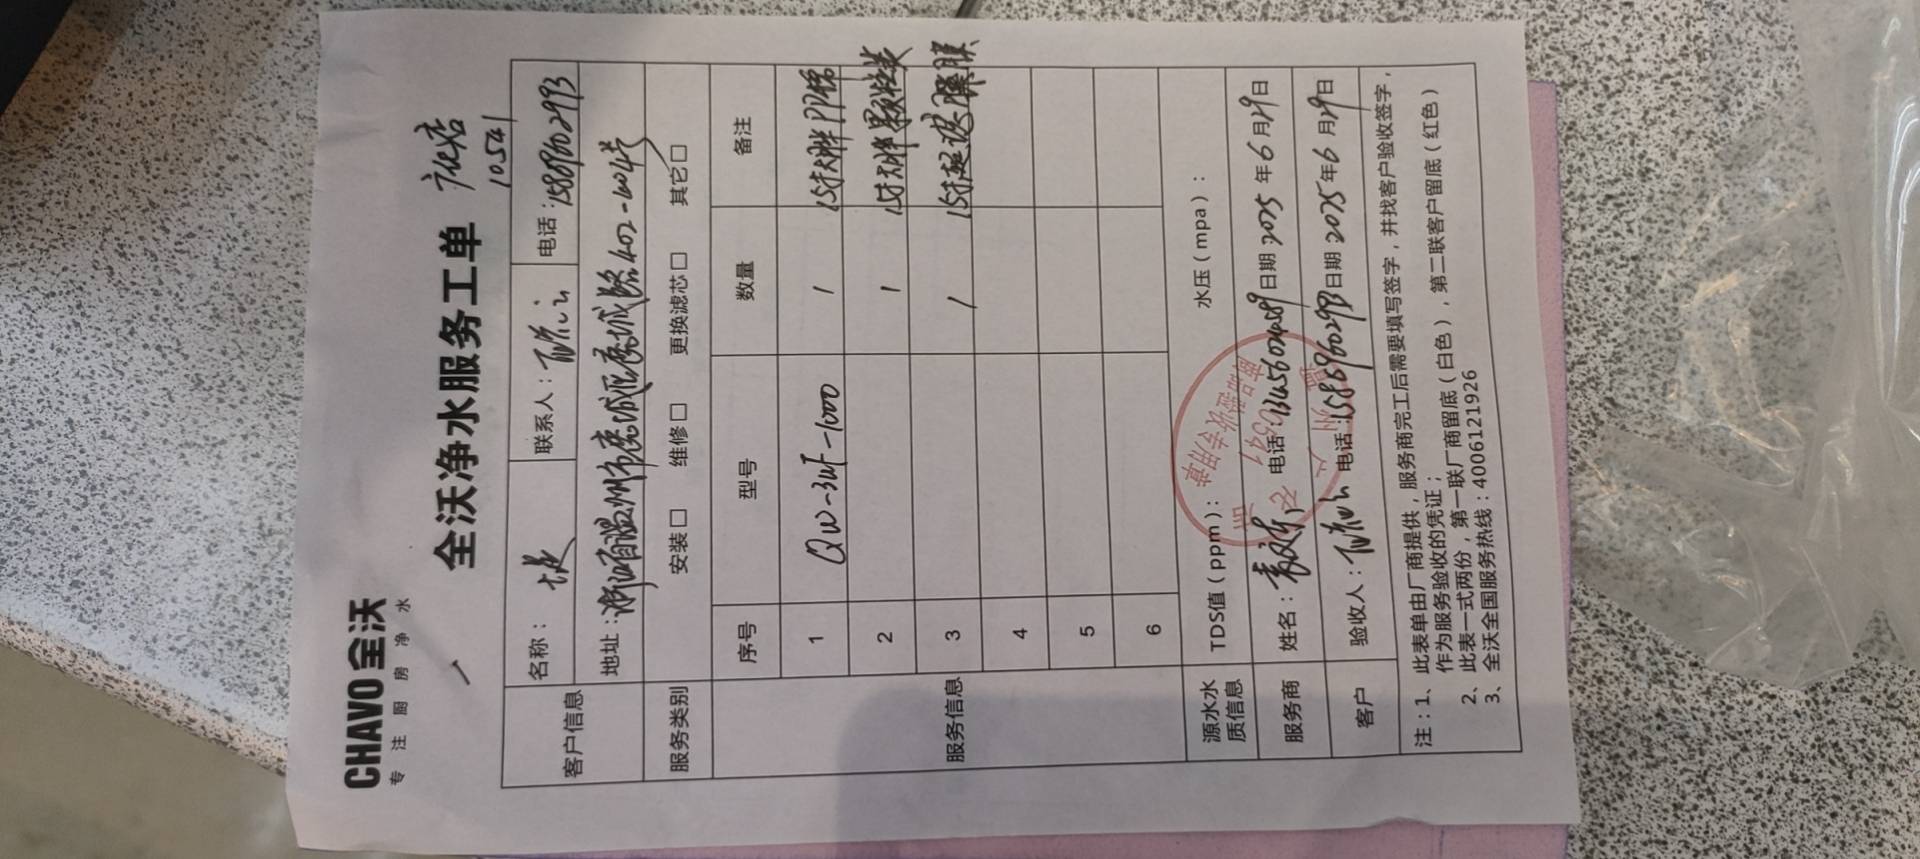 CHAVO 全沃
专 注 厨 房 净 水
全沃净水服务工单
10541
客户信息 名称： 联系人： 电话：15889602993
地址：浙江省温州市鹿城区
服务类别 安装□ 维修□ 更换滤芯□ 其它□
服务信息 序号 型号 数量 备注
1 QW-3UF-1000 1 15寸大胖PP棉
2 1 15寸大胖颗粒炭
3 1 15寸超滤膜
4
5
6
源水水质信息 TDS值（ppm）： 水压（mpa）：
服务商 姓名： 电话： 日期 2025 年 6 月 29 日
客户 验收人： 电话：15889602993 日期 2025 年 6 月 29 日
注：1、此表单由厂商提供，服务商完工后需要填写签字，并找客户验收签字，
作为服务验收的凭证；
2、此表一式两份，第一联厂商留底（白色），第二联客户留底（红色）
3、全沃全国服务热线：4006121926
商品验收专用章
10541